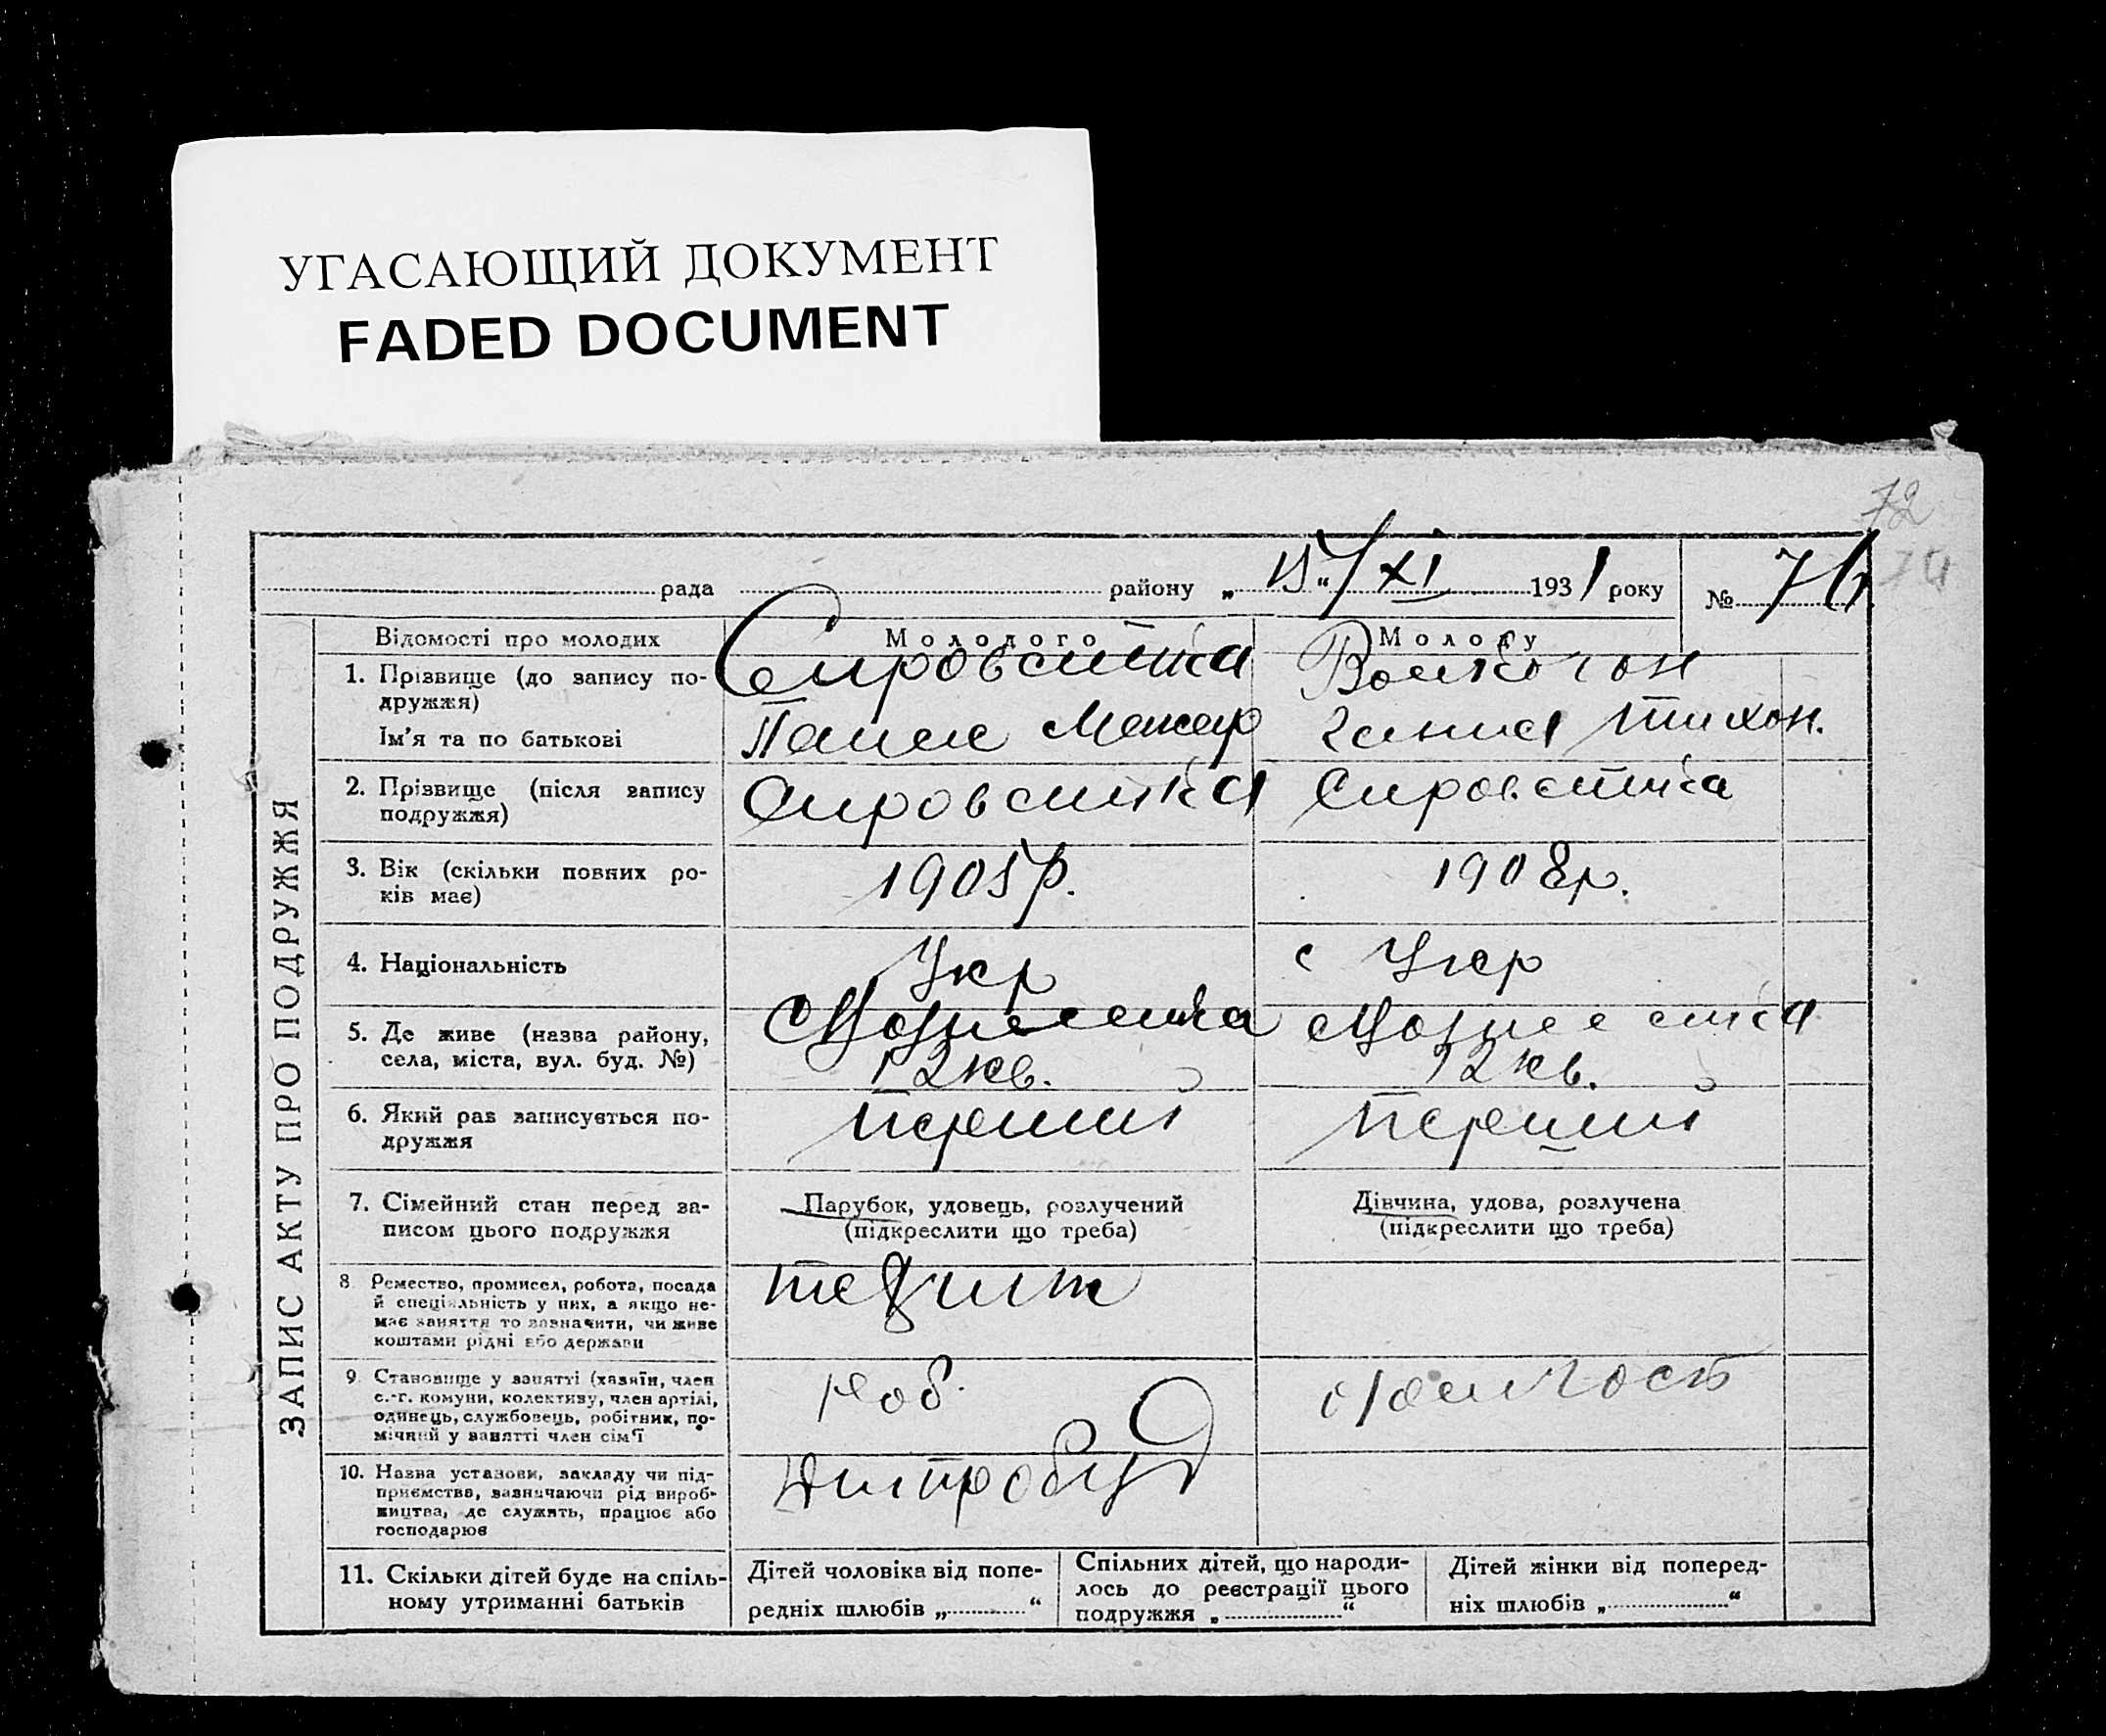 УГАСАЮЩИЙ ДОКУМЕНТ
FADED DOCUMENT
72
ЗАПИС АКТУ ПРО ПОДРУЖЖЯ
рада району „15“/XI 1931 року № 76
Відомості про молодих Молодого Молоду
1. Прізвище (до запису по-
дружжя)
Сировєтка
Ім'я та по батькові
Тихон.
2. Прізвище (після запису
подружжя)
Сировєтка Сировєтка
3. Вік (скільки повних ро-
ків має)
1905р. 1908р.
4. Національність
Укр Укр
5. Де живе (назва району,
села, міста, вул. буд. №)
12 кв. 12 кв.
6. Який раз записується по-
дружжя
Перший Перший
7. Сімейний стан перед за-
писом цього подружжя
Парубок, удовець, розлучений
(підкреслити що треба)
Дівчина, удова, розлучена
(підкреслити що треба)
8. Ремество, промисел, робота, посада
й спеціяльність у них, а якщо не-
має заняття то зазначити, чи живе
коштами рідні або держави
9. Становище у занятті (хазяїн, член
с.-г. комуни, колективу, член артілі,
одинець, службовець, робітник, по-
мічний у занятті член сім'ї
Роб.
10. Назва установи, закладу чи під-
приємства, зазначаючи рід вироб-
ництва, де служить, працює або
господарює
Дніпробуд
11. Скільки дітей буде на спіль-
ному утриманні батьків
Дітей чоловіка від попе-
редніх шлюбів „ “
Спільних дітей, що народи-
лось до реєстрації цього
подружжя „ “
Дітей жінки від поперед-
ніх шлюбів „ “